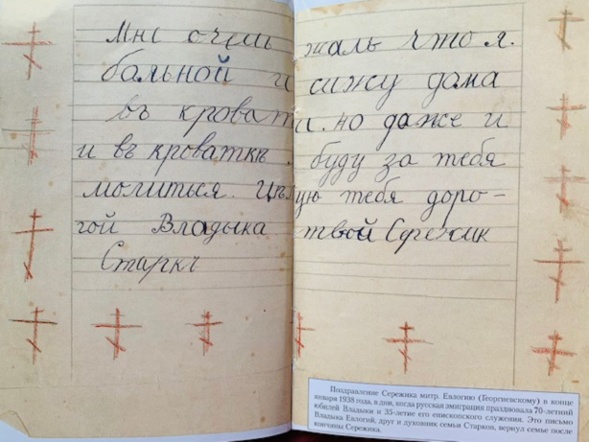 Мнѣ очень жаль что я.
больной и сижу дама
въ кровати. но даже и
и въ кроваткѣ. буду за тебя
молиться. Цѣлую тебя доро-
гой Владыка твой Сережик
Старкъ
Поздравление Сережика митр. Евлогию (Георгиевскому) в конце
января 1938 года, в дни, когда русская эмиграция праздновала 70-летний
юбилей Владыки и 35-летие его епископского служения. Это письмо
Владыка Евлогий, друг и духовник семьи Старков, вернул семье после
кончины Сережика.